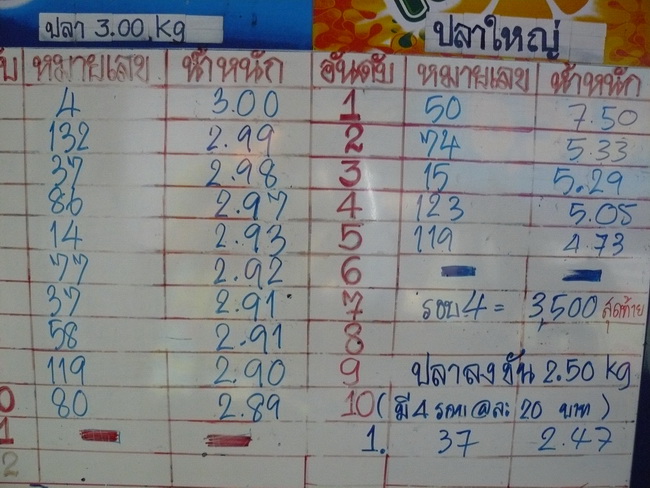 ปลา 3.00 kg
ปลาใหญ่
บ หมายเลข น้ำหนัก
4 3.00
132 2.99
37 2.98
86 2.97
14 2.93
77 2.92
37 2.91
58 2.91
119 2.90
0 80 2.89
1
2
อันดับ หมายเลข น้ำหนัก
1 50 7.50
2 74 5.33
3 15 5.29
4 123 5.05
5 119 4.73
6
7 รอบ 4 = 3,500 สุดท้าย
8
9 ปลาลงขัน 2.50 kg
10 (มี 4 @ละ 20 บาท)
1. 37 2.47